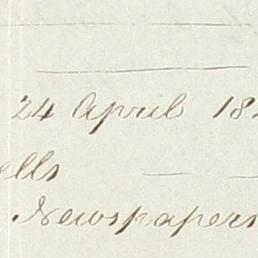 24 April 18
ells
Newspapers